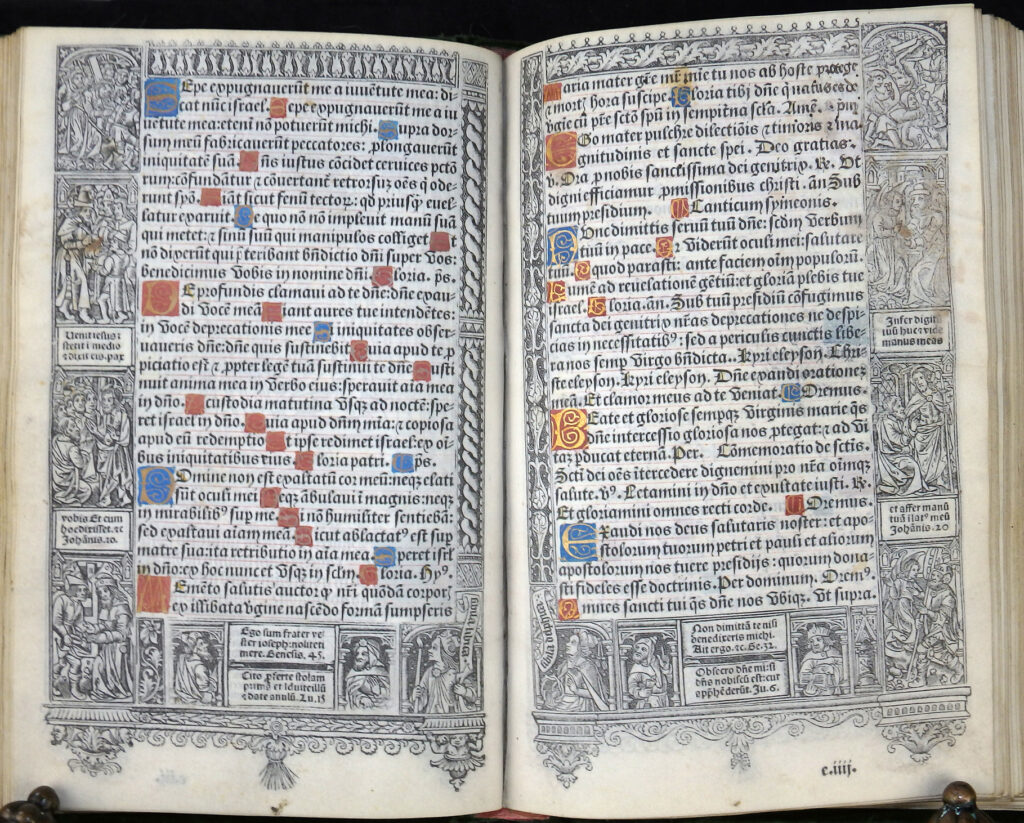 Sepe expugnauerūt me a iuuētute mea: di-
cat nūc israel. Sepe expugnauerūt me a iu
uētute mea: etenī nō potuerūt michi. Supra dor-
sum meū fabricauerūt peccatores: plongauerūt
iniquitatē suā. Dn̄s iustus cōcidet ceruices pctō
rum: cōfundātur ⁊ cōuertant̄ retrorsuȝ oēs q̄ ode-
runt syō. Fiāt sicut fenū tectoꝝ: qd priusq̄ euel-
latur exaruit. De quo nō nō impleuit manū suā
qui metet: ⁊ sinū suū qui manipulos colliget. Et
nō dixerūt qui p̄teribant bn̄dictio dn̄i super vos:
benedicimus vobis in nomine dn̄i. Gloria. ps̄.
De profundis clamaui ad te dn̄e: dn̄e exau-
di vocē meā. Fiant aures tue intendētes:
in vocē deprecationis mee. Si iniquitates obser-
uaueris dn̄e: dn̄e quis sustinebit. Quia apud te p̱
piciatio est ⁊ ꝓpter legē tuā sustinui te dn̄e. Susti
nuit anima mea in verbo eius: sperauit aīa mea
in dn̄o. A custodia matutina vsqȝ ad noctē: spe-
ret israel in dn̄o. Quia apud dn̄m mīa: ⁊ copiosa
apud eū redemptio. Et ipse redimet israel: ex oī-
bus iniquitatibus eius. Gloria patri. ps̄.
Domine non est exaltatū cor meū: neqȝ elati
sūt oculi mei. Neqȝ ābulaui ī magnis: neqȝ
in mirabilibꝰ sup̱ me. Si nō humiliter sentiebā:
sed exaltaui aīam meā. Sicut ablactatꝰ est sup̱
matre sua: ita retributio in aīa mea. Speret isrl̄
in dn̄o: ex hoc nunc et vsqȝ in sclm̄. Gloria. Hyꝰ.
Memēto salutis auctor qͥ nr̄i quōdam corpor̄,
ex illibata vgine nascēdo formā sumpseris
Uenit iesus ⁊
stetit ī medio
⁊ dixit eis. pax
vobis Et cum
hoc dixisset. ⁊c
Johānis. 20.
Ego sum frater ve
ster ioseph: nolite ti
mere. Genesis. 45.
Cito ꝓferte stolam
primā et īduite illū
⁊ date annlū. Lu. 15
Maria mater gr̄e mr̄ mīe tu nos ab hoste protege
⁊ mortꝭ hora suscipe. Gloria tibi dn̄e q̄ natus es de
v̄gie cū pr̄e sctō spū in sempitna scla. Amē.
Ego mater pulchre dilectiōis ⁊ timoris ⁊ ma
gnitudinis et sancte spei. Deo gratias.
v. Ora ꝓ nobis sanctissima dei genitrix. R. Ut
digni efficiamur ꝓmissionibus christi. an̄. Sub
tuum presidium. Canticum symeonis.
Nunc dimittis seruū tuū dn̄e: scdm̄ verbum
tuū in pace. Quia viderūt oculi mei: salutare
tuū. Quod parasti: ante faciem oīm populorū.
Lumē ad reuelationē gētiū: et gloriā plebis tue
israel. Gloria. an̄. Sub tuū presidiū cōfugimus
sancta dei genitrix nr̄as deprecationes ne despi-
cias in necessitatibꝰ: sed a periculis cunctis libe-
ra nos semp̱ virgo bn̄dicta. Kyri eleyson. Chri-
ste eleyson. Kyri eleyson. Dn̄e exaudi orationez
meā. Et clamor meus ad te veniat. Oremus.
Beate et gloriose sempqȝ virginis marie qs̄
dn̄e intercessio gloriosa nos ꝓtegat: ⁊ ad vi
taȝ ꝑducat eternā. Per. Cōmemoratio de sctīs.
Scti dei oēs intercedere dignemini pro nr̄a oīmqȝ
salute. vꝰ. Letamini in dn̄o et exultate iusti. R.
Et gloriamini omnes recti corde. Oremus.
Exaudi nos deus salutaris noster: et apo-
stolorum tuorum petri et pauli et aliorum
apostolorum nos tuere presidijs: quorum dona-
sti fideles esse doctrinis. Per dominum. Oremꝰ.
Omnes sancti tui qs̄ dn̄e nos vbiqȝ. Ut supra.
Infer digitū
tuū huc ⁊ vide
manus meas
et affer manū
tuā ī latꝰ meū
Johānis. 20
Non dimittā te nisi
benedixeris michi.
Ait ergo. ⁊c. Ge. 32.
Obsecro dn̄e mi: si
dn̄s nobiscū est: cur
app̱hēderūt. Ju. 6.
c.iiij.